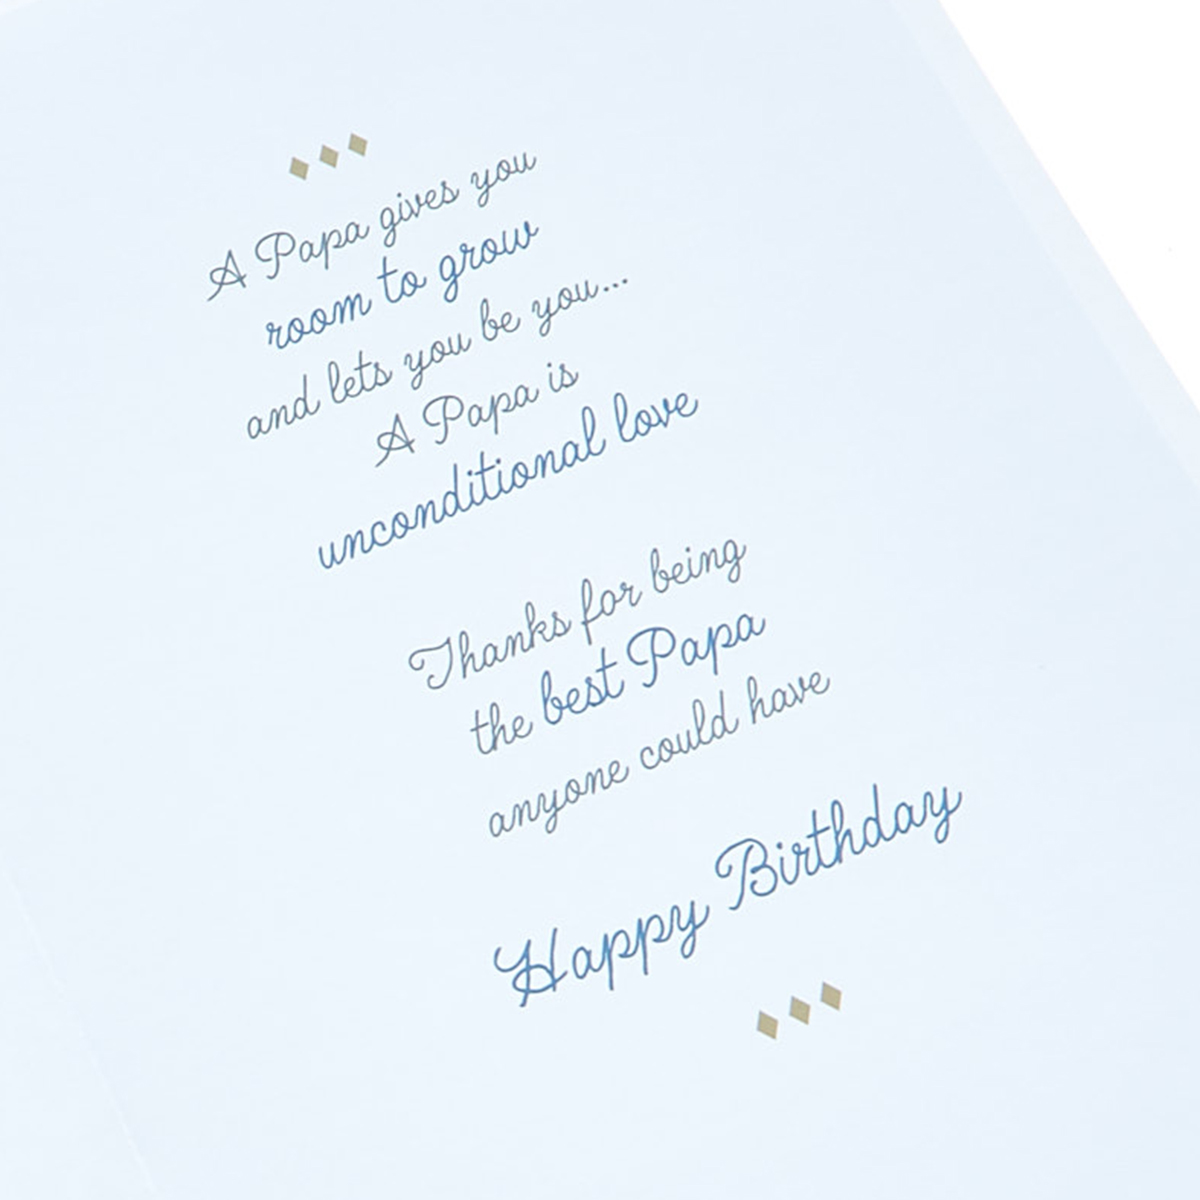 A Papa gives you
room to grow
and lets you be you...
A Papa is
unconditional love
Thanks for being
the best Papa
anyone could have
Happy Birthday